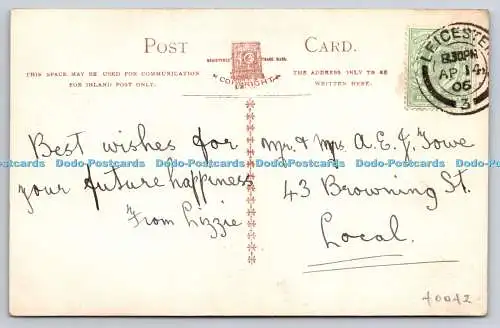 POST CARD.
REGISTERED TRADE MARK.
COPYRIGHT
THIS SPACE MAY BE USED FOR COMMUNICATION
FOR INLAND POST ONLY.
THE ADDRESS ONLY TO BE
WRITTEN HERE.
LEICESTER
8.30PM
AP 14
06
3
Best wishes for
your future happiness
From Lizzie
Mr. & Mrs A. E. J. Towe
43 Browning St.
Local.
40042
Dodo-Postcards Dodo-Postcards Dodo-Postcards Dodo-Postcards Dodo-Postcards
Dodo-Postcards Dodo-Postcards Dodo-Postcards Dodo-Postcards